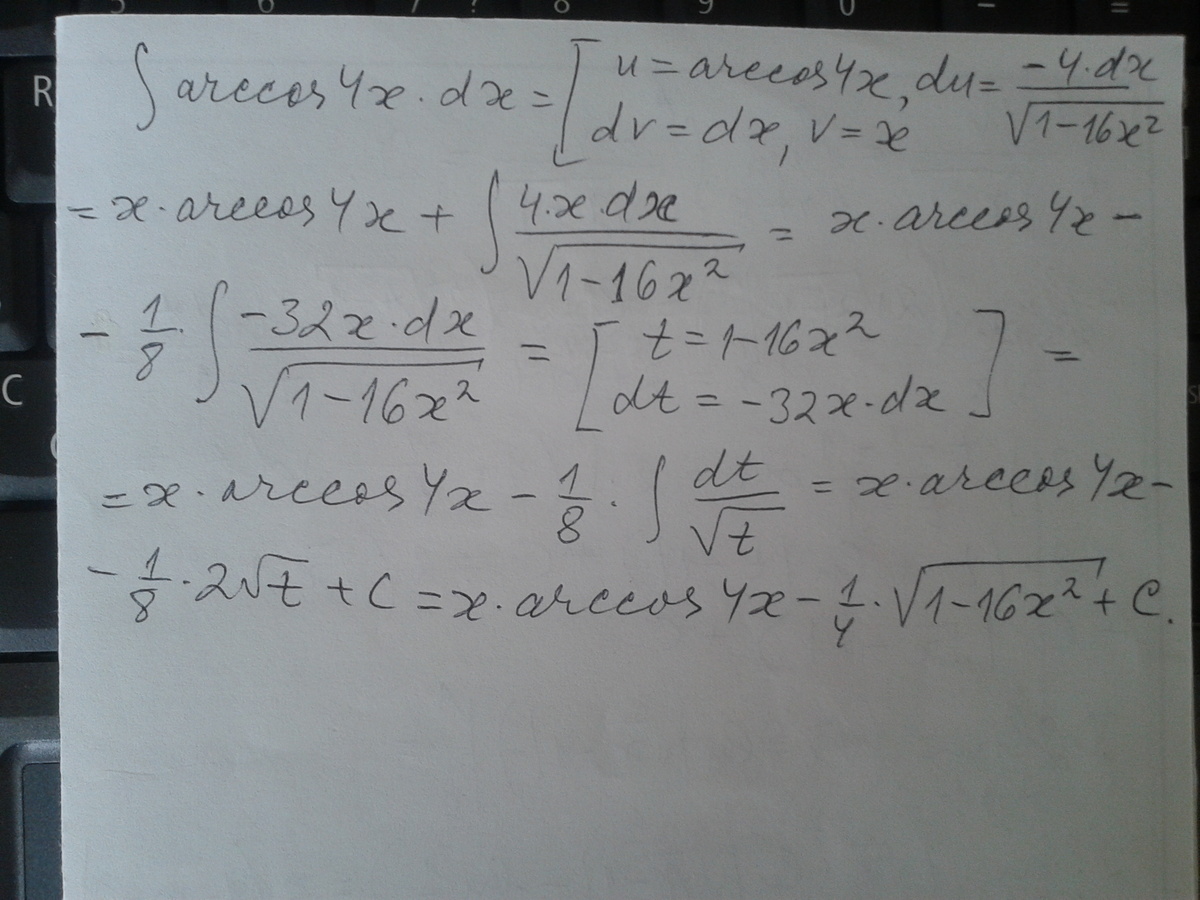 ∫ arccos 4x · dx = [ u = arccos 4x, du = -4·dx / √(1-16x²)
dv = dx, v = x
= x · arccos 4x + ∫ 4·x·dx / √(1-16x²) = x · arccos 4x -
- 1/8 · ∫ -32x·dx / √(1-16x²) = [ t = 1-16x²
dt = -32x·dx ] =
= x · arccos 4x - 1/8 · ∫ dt / √t = x · arccos 4x -
- 1/8 · 2√t + C = x · arccos 4x - 1/4 · √(1-16x²) + C.